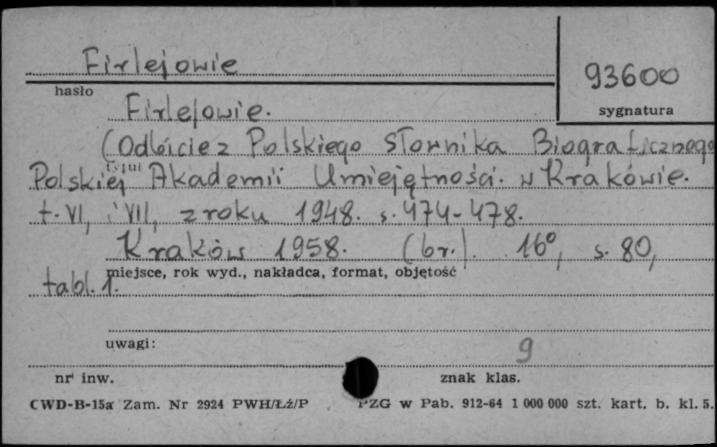 Firlejowie
93600
hasło
sygnatura
Firlejowie.
(Odbicie z Polskiego Słownika Biograficznego
tytuł
Polskiej Akademii Umiejętności. w Krakowie.
t. VI, i VII, z roku 1948. s. 474-478.
Kraków 1958. (br.). 16°, s. 80,
miejsce, rok wyd., nakładca, format, objętość
tabl. 1.
uwagi:
9
nr inw.
znak klas.
CWD-B-15a Zam. Nr 2924 PWH/Łż/P
PZG w Pab. 912-64 1 000 000 szt. kart. b. kl. 5.